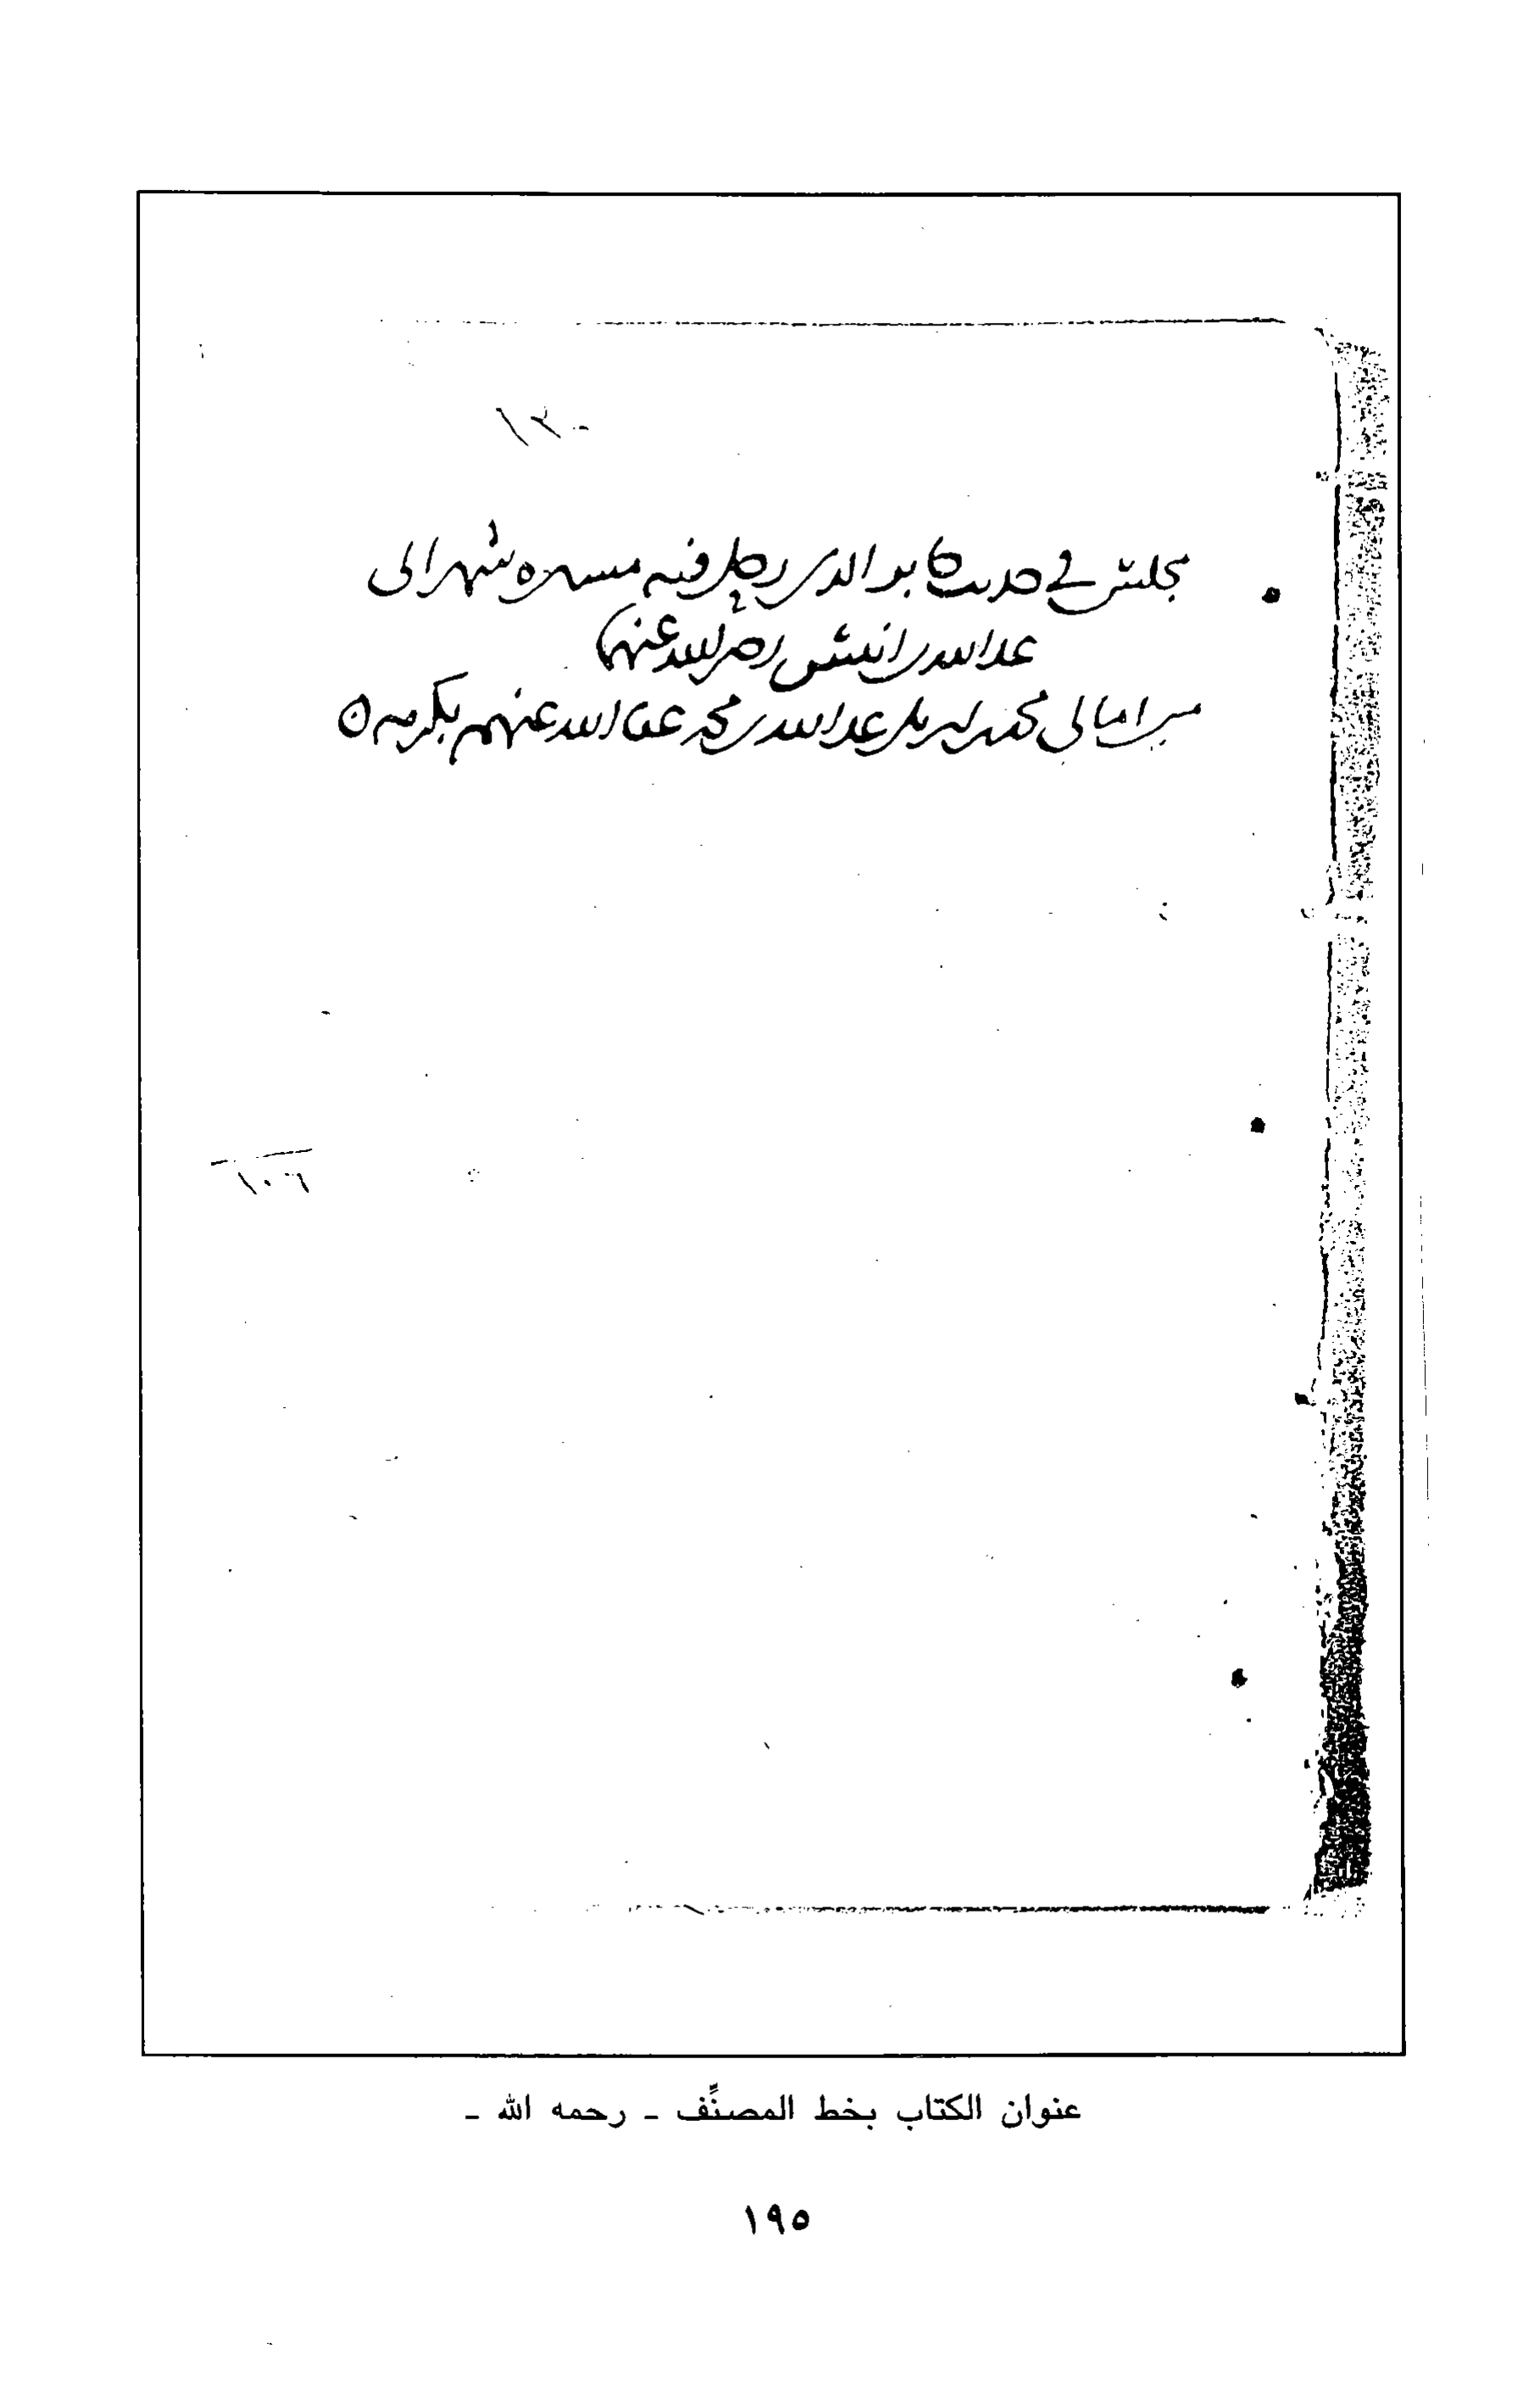 ١٣٠
مجلس في حديث جابر الذي رحل فيه مسيرة شهر الى
عبد الله بن انيس رضي الله عنهما
من امالي محمد بن ابي بكر عبد الله بن محمد عفا الله عنهم بكرمه
١٠٦
عنوان الكتاب بخط المصنِّف ـ رحمه الله ـ
١٩٥